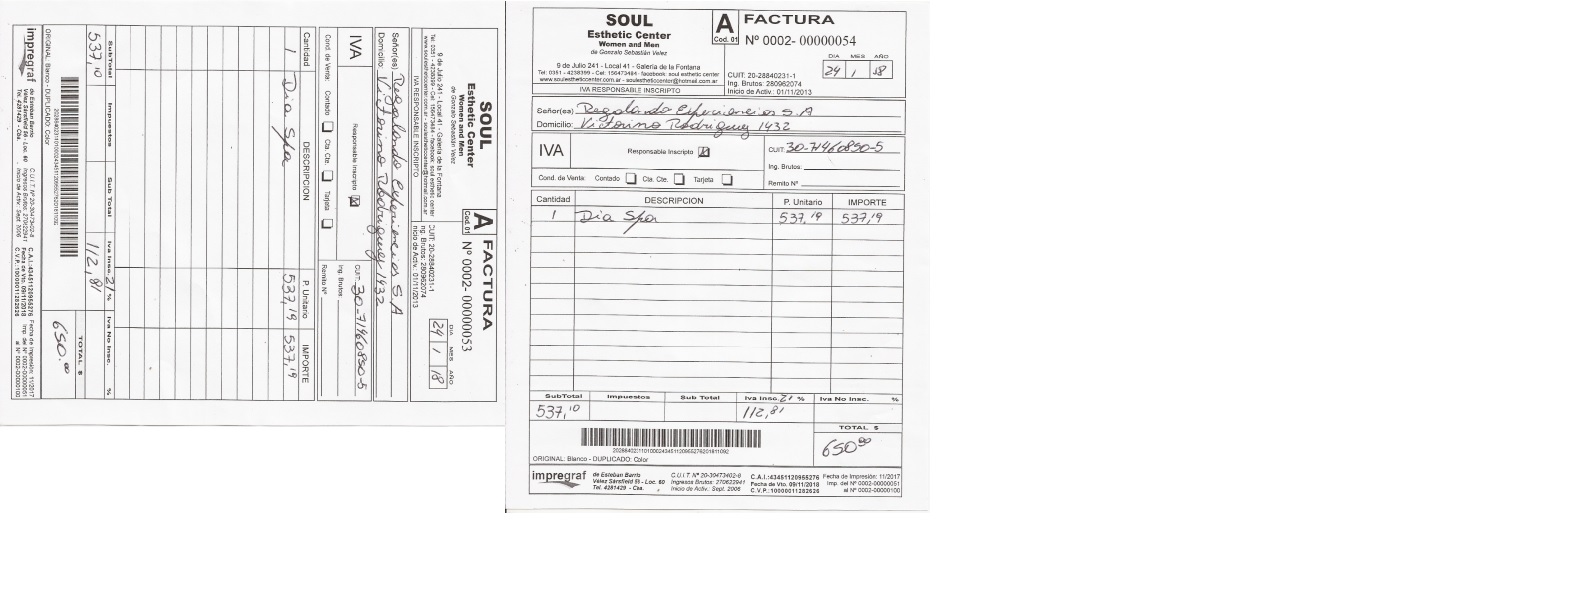 SOUL
Esthetic Center
Women and Men
de Gonzalo Sebastián Velez
9 de Julio 241 - Local 41 - Galería de la Fontana
Tel: 0351 - 4238399 - Cel: 156473484 - facebook: soul esthetic center
www.soulestheticcenter.com.ar - soulestheticcenter@hotmail.com.ar
IVA RESPONSABLE INSCRIPTO
A
Cod. 01
FACTURA
Nº 0002- 00000053
DIA MES AÑO
24 1 18
CUIT: 20-28840231-1
Ing. Brutos: 280962074
Inicio de Activ.: 01/11/2013
Señor(es) Regalando Experiencias S.A
Domicilio: Victorino Rodriguez 1432
IVA Responsable Inscripto
CUIT: 30-71460850-5
Ing. Brutos:
Cond. de Venta: Contado Cta. Cte. Tarjeta
Remito Nº
Cantidad DESCRIPCION P. Unitario IMPORTE
1 Dia Spa 537,19 537,19
SubTotal Impuestos Sub Total Iva Insc. 21 % Iva No Insc. %
537,10 112,81
TOTAL $
650.00
20288402311010002434511209552762018110​92
ORIGINAL: Blanco - DUPLICADO: Color
impregraf
de Esteban Barrio
Vélez Sársfield 51 - Loc. 60
Tel. 4281429 - Cba.
C.U.I.T. Nº 20-30473402-8
Ingresos Brutos: 270622941
Inicio de Activ. Sept. 2006
C.A.I.:43451120955276
Fecha de Vto. 09/11/2018
C.V.P.:10000011282626
Fecha de Impresión: 11/2017
Imp. del Nº 0002-00000051
al Nº 0002-00000100
SOUL
Esthetic Center
Women and Men
de Gonzalo Sebastián Velez
9 de Julio 241 - Local 41 - Galería de la Fontana
Tel: 0351 - 4238399 - Cel: 156473484 - facebook: soul esthetic center
www.soulestheticcenter.com.ar - soulestheticcenter@hotmail.com.ar
IVA RESPONSABLE INSCRIPTO
A
Cod. 01
FACTURA
Nº 0002- 00000054
DIA MES AÑO
24 1 18
CUIT: 20-28840231-1
Ing. Brutos: 280962074
Inicio de Activ.: 01/11/2013
Señor(es) Regalando Experiencias S.A
Domicilio: Victorino Rodriguez 1432
IVA Responsable Inscripto
CUIT: 30-71460850-5
Ing. Brutos:
Cond. de Venta: Contado Cta. Cte. Tarjeta
Remito Nº
Cantidad DESCRIPCION P. Unitario IMPORTE
1 Dia Spa 537,19 537,19
SubTotal Impuestos Sub Total Iva Insc. 21 % Iva No Insc. %
537,10 112,81
TOTAL $
650.00
ORIGINAL: Blanco - DUPLICADO: Color
impregraf
de Esteban Barrio
Vélez Sársfield 51 - Loc. 60
Tel. 4281429 - Cba.
C.U.I.T. Nº 20-30473402-8
Ingresos Brutos: 270622941
Inicio de Activ. Sept. 2006
C.A.I.:43451120955276
Fecha de Vto. 09/11/2018
C.V.P.:10000011282626
Fecha de Impresión: 11/2017
Imp. del Nº 0002-00000051
al Nº 0002-00000100